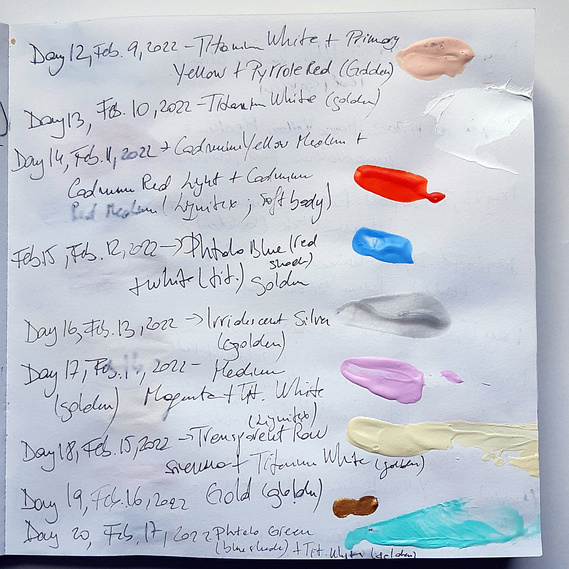 Day 12, Feb. 9, 2022 - Titanium White + Primary
Yellow + Pyrrole Red (Golden)
Day 13, Feb. 10, 2022 - Titanium White (golden)
Day 14, Feb. 11, 2022 → Cadmium Yellow Medium +
Cadmium Red Light + Cadmium
Red Medium (Liquitex; soft body)
Feb 15, Feb. 12, 2022 → Phtalo Blue (red
shade)
+ White (tit.) golden
Day 16, Feb. 13, 2022 → Irridescent Silver
(golden)
Day 17, Feb. 14, 2022 - Medium
(golden) Magenta + Tit. White
(Liquitex)
Day 18, Feb. 15, 2022 → Transparent Raw
sienna + Titanium White (golden)
Day 19, Feb. 16, 2022 Gold (golden)
Day 20, Feb. 17, 2022 Phtalo Green
(blue shade) + Tit. White (golden)